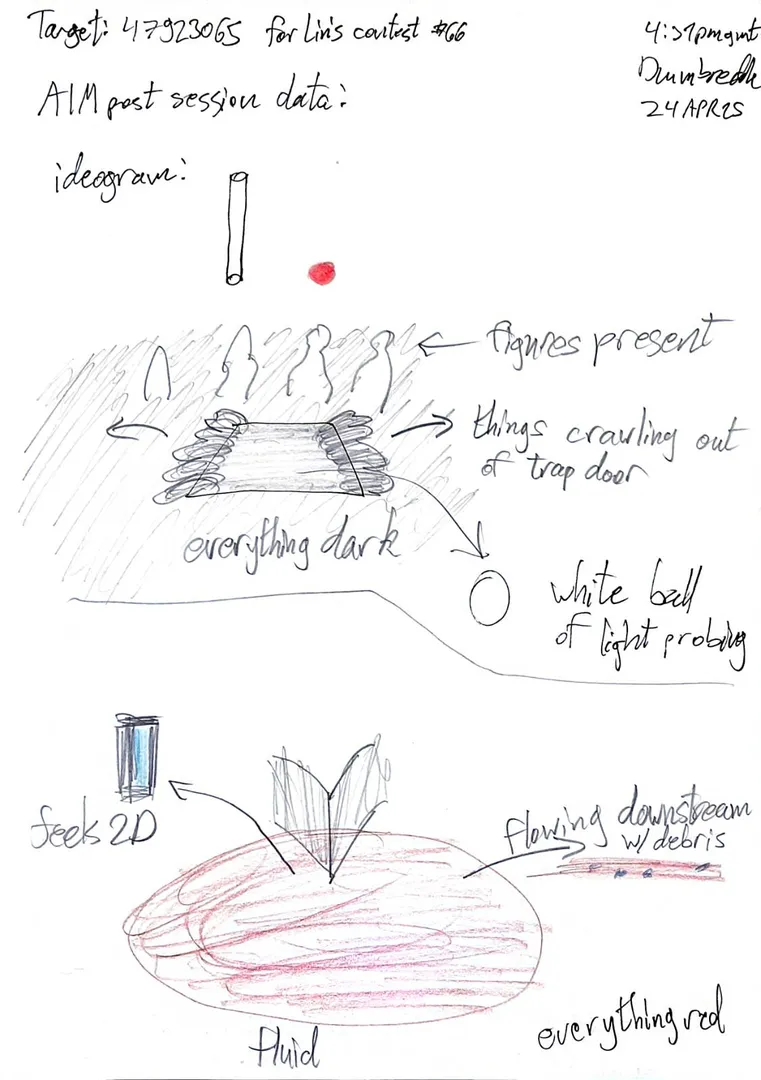 Target: 47923065 for Lin's contest #66
4:37pm gmt
Dumbredde
24 APR 25
AIM post session data:
ideogram:
figures present
things crawling out
of trap door
everything dark
white ball
of light probing
feels 2D
flowing downstream
w/ debris
fluid
everything red